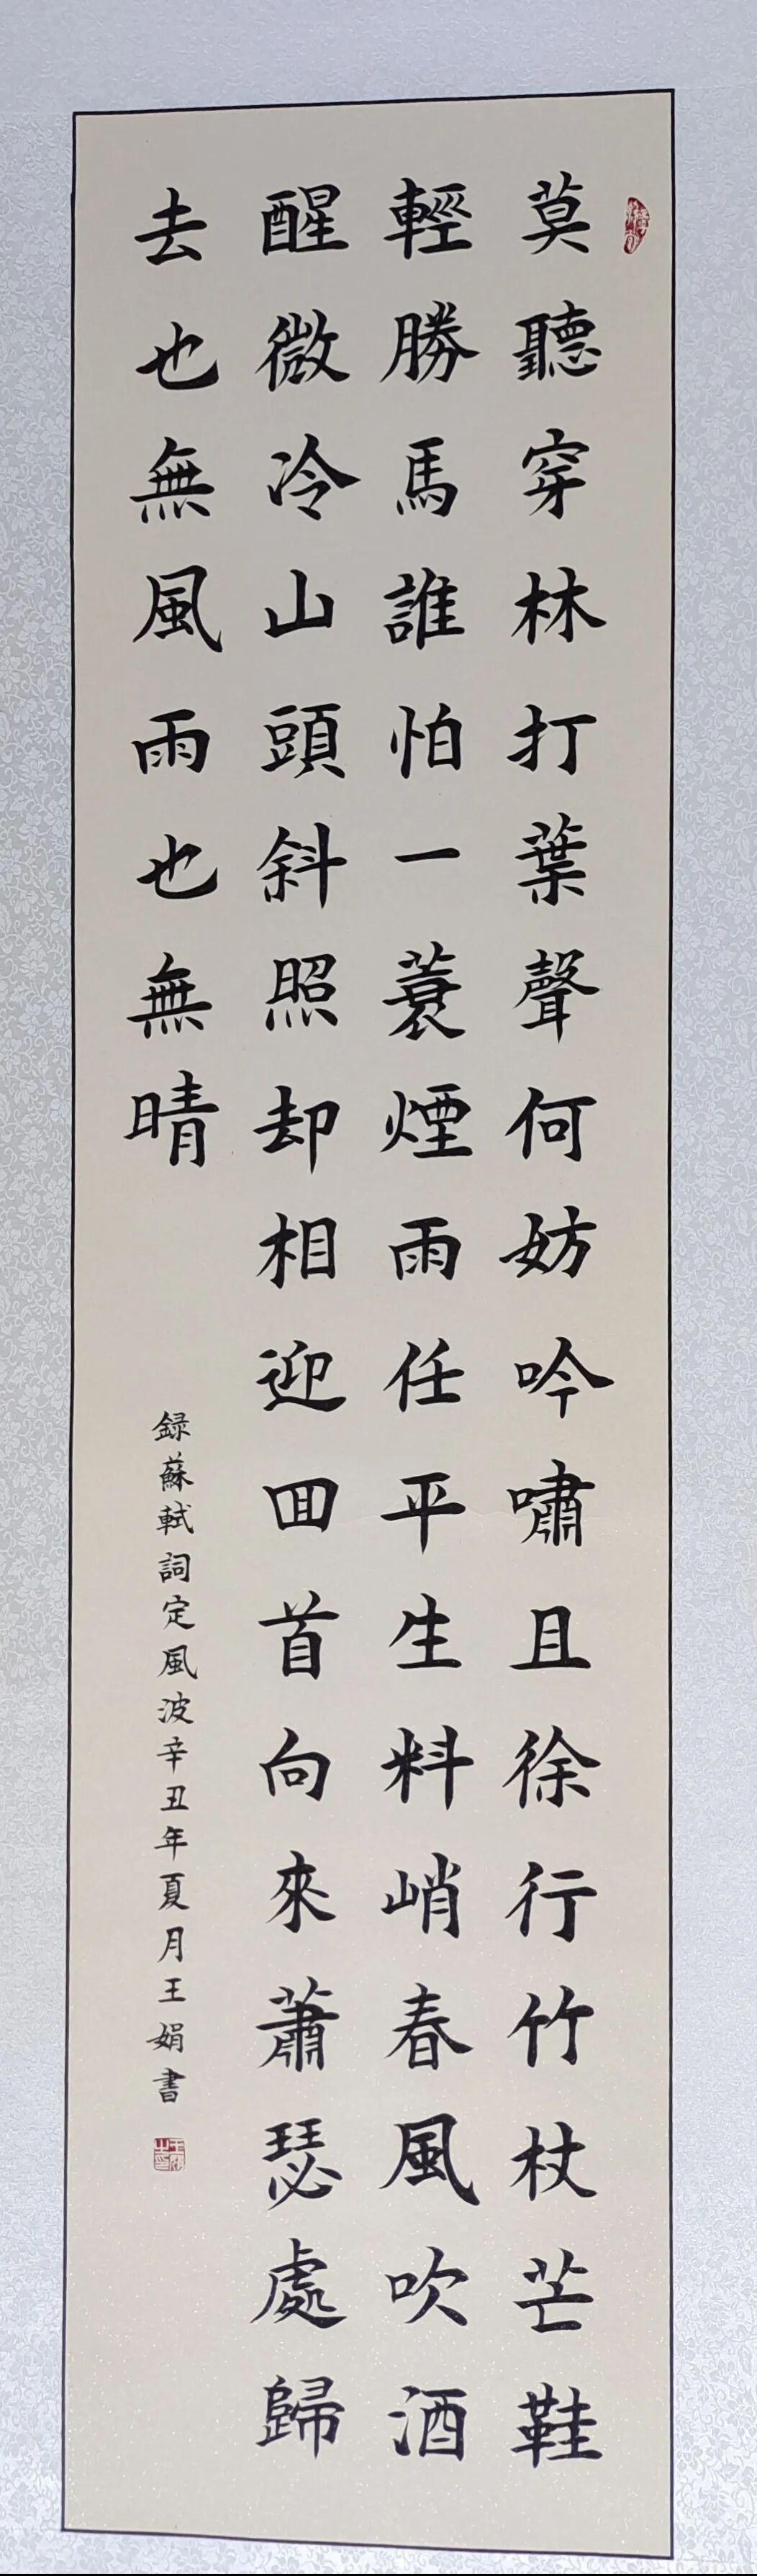 莫聽穿林打葉聲何妨吟嘯且徐行竹杖芒鞋
輕勝馬誰怕一蓑煙雨任平生料峭春風吹酒
醒微冷山頭斜照却相迎回首向來蕭瑟處歸
去也無風雨也無晴
録蘇軾詞定風波辛丑年夏月王娟書